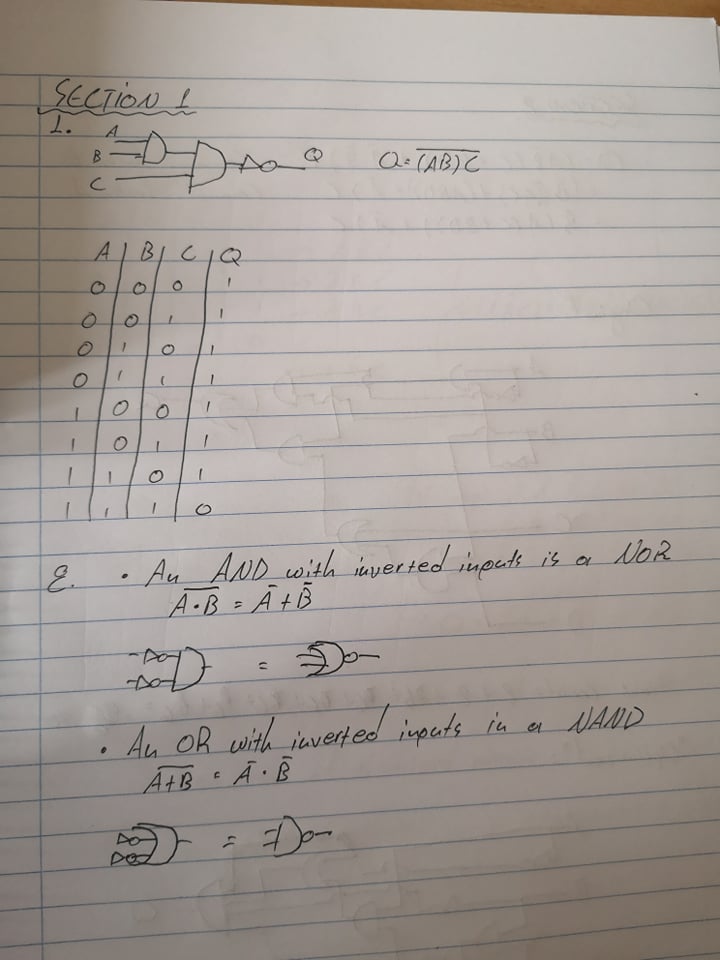 SECTION 1
1.
A
B
C
Q
Q = \overline{(AB)C}
A | B | C | Q
0 | 0 | 0 | 1
0 | 0 | 1 | 1
0 | 1 | 0 | 1
0 | 1 | 1 | 1
1 | 0 | 0 | 1
1 | 0 | 1 | 1
1 | 1 | 0 | 1
1 | 1 | 1 | 0
2. • An AND with inverted inputs is a NOR
\overline{A·B} = Ā + B̄
=
• An OR with inverted inputs in a NAND
\overline{A+B} = Ā · B̄
=